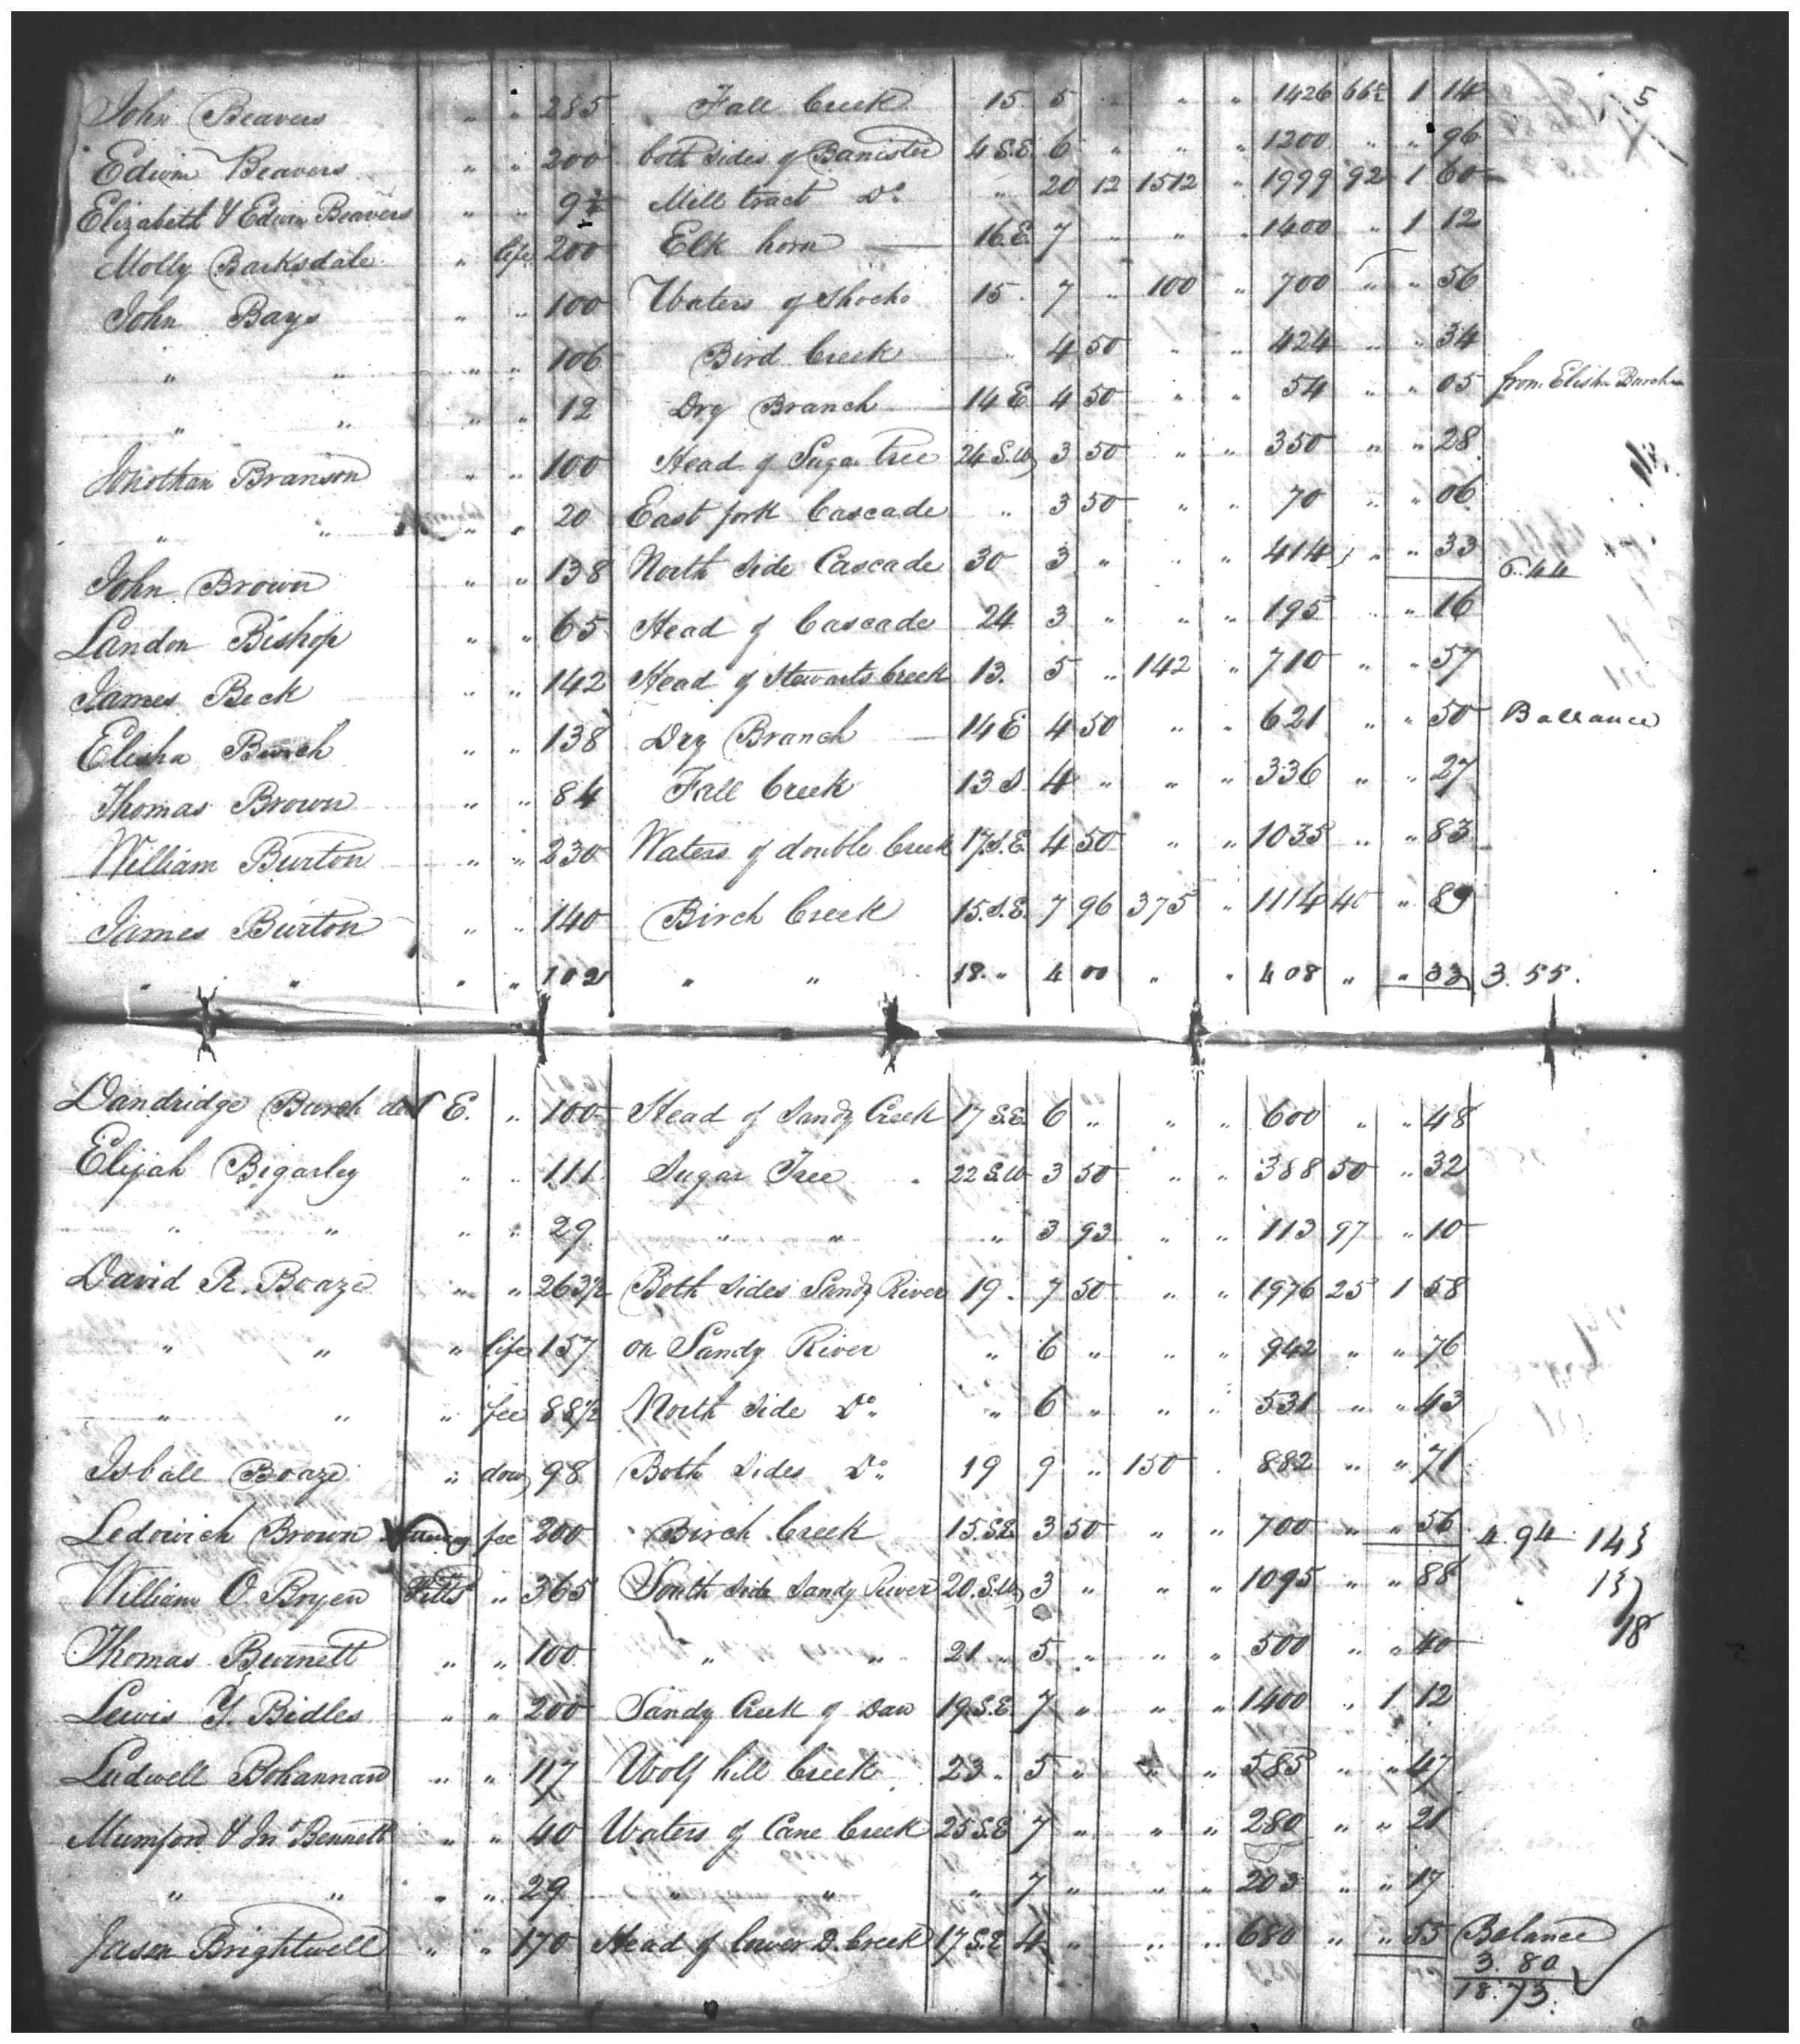 5
John Beavers " " 285 Fall Creek 15. 5 " " " 1426 66½ 1 14
Edwin Beavers " " 200 both sides of Banister 4 S.E. 6 " " " 1200 " " 96
Elizabeth & Edwin Beavers " " 9¾ Mill tract Do " 20 12 1512 " 1999 92 1 60
Molly Barksdale " life 200 Elk horn 16.E. 7 " " " 1400 " 1 12
John Bays " " 100 Waters of Shocko 15. 7 " 100 " 700 " " 56
" " " " 106 Bird Creek " 4 50 " " 424 " " 34
" " " " 12 Dry Branch 14 E 4 50 " " 54 " " 05 from Elisha
Jonothan Branson " " 100 Head of Sugar tree 24 S.W 3 50 " " 350 " " 28
" " " " 20 East fork Cascade " 3 50 " " 70 " " 06
John Brown " " 138 North Side Cascade 30 3 " " " 414 " " 33 6.44
Landon Bishop " " 65 Head of Cascade 24 3 " " " 195 " " 16
James Beck " " 142 Head of Stewarts Creek 13. 5 " 142 " 710 " " 57
Elisha Burch " " 138 Dry Branch 14 E 4 50 " " 621 " " 50 Ballance
Thomas Brown " " 84 Fall Creek 13 S 4 " " " 336 " " 27
William Burton " " 230 Waters of double Creek 17.S.E. 4 50 " " 1035 " " 83
James Burton " " 140 Birch Creek 15.S.E. 7 96 375 " 1114 40 " 89
" " " " 102 " " 18. " 4 00 " " 408 " " 33 3.55.
Dandridge Burch decd E. " 100 Head of Sandy Creek 17 S.E. 6 " " " 600 " " 48
Elijah Bigarley " " 111 Sugar Tree " 22 S.W 3 50 " " 388 50 " 32
" " " " 29 " " " 3 93 " " 113 97 " 10
David R. Boaze " " 263½ Both Sides Sandy River 19. 7 50 " " 1976 25 1 58
" " " life 157 on Sandy River " 6 " " " 942 " " 76
" " " fee 88½ North Side Do " 6 " " " 531 " " 43
Isball Boaze " dow 98 Both Sides Do 19 9 " 150 " 882 " " 71
Ledowich Brown fee 200 Birch Creek 15.S.E. 3 50 " " 700 " " 56 4.94 14
William O. Bryen Pitts " 365 South Side Sandy River 20.S.W 3 " " " 1095 " " 88 13
Thomas Burnett " " 100 " " 21 " 5 " " " 500 " " 40 18
Lewis Y. Bidles " " 200 Sandy Creek of Dan 19.S.E. 7 " " " 1400 " 1 12
Ludwell Bohannard " " 117 Wolf hill Creek 23 " 5 " " " 585 " " 47
Mumford & Jno Bennett " " 40 Waters of Cane Creek 25 S.E 7 " " " 280 " " 21
" " " " 29 " " " 7 " " " 203 " " 17
Jason Brightwell " " 170 Head of lower D. Creek 17 S.E 4 " " " 680 " " 55 Balance
3.80
18.73.